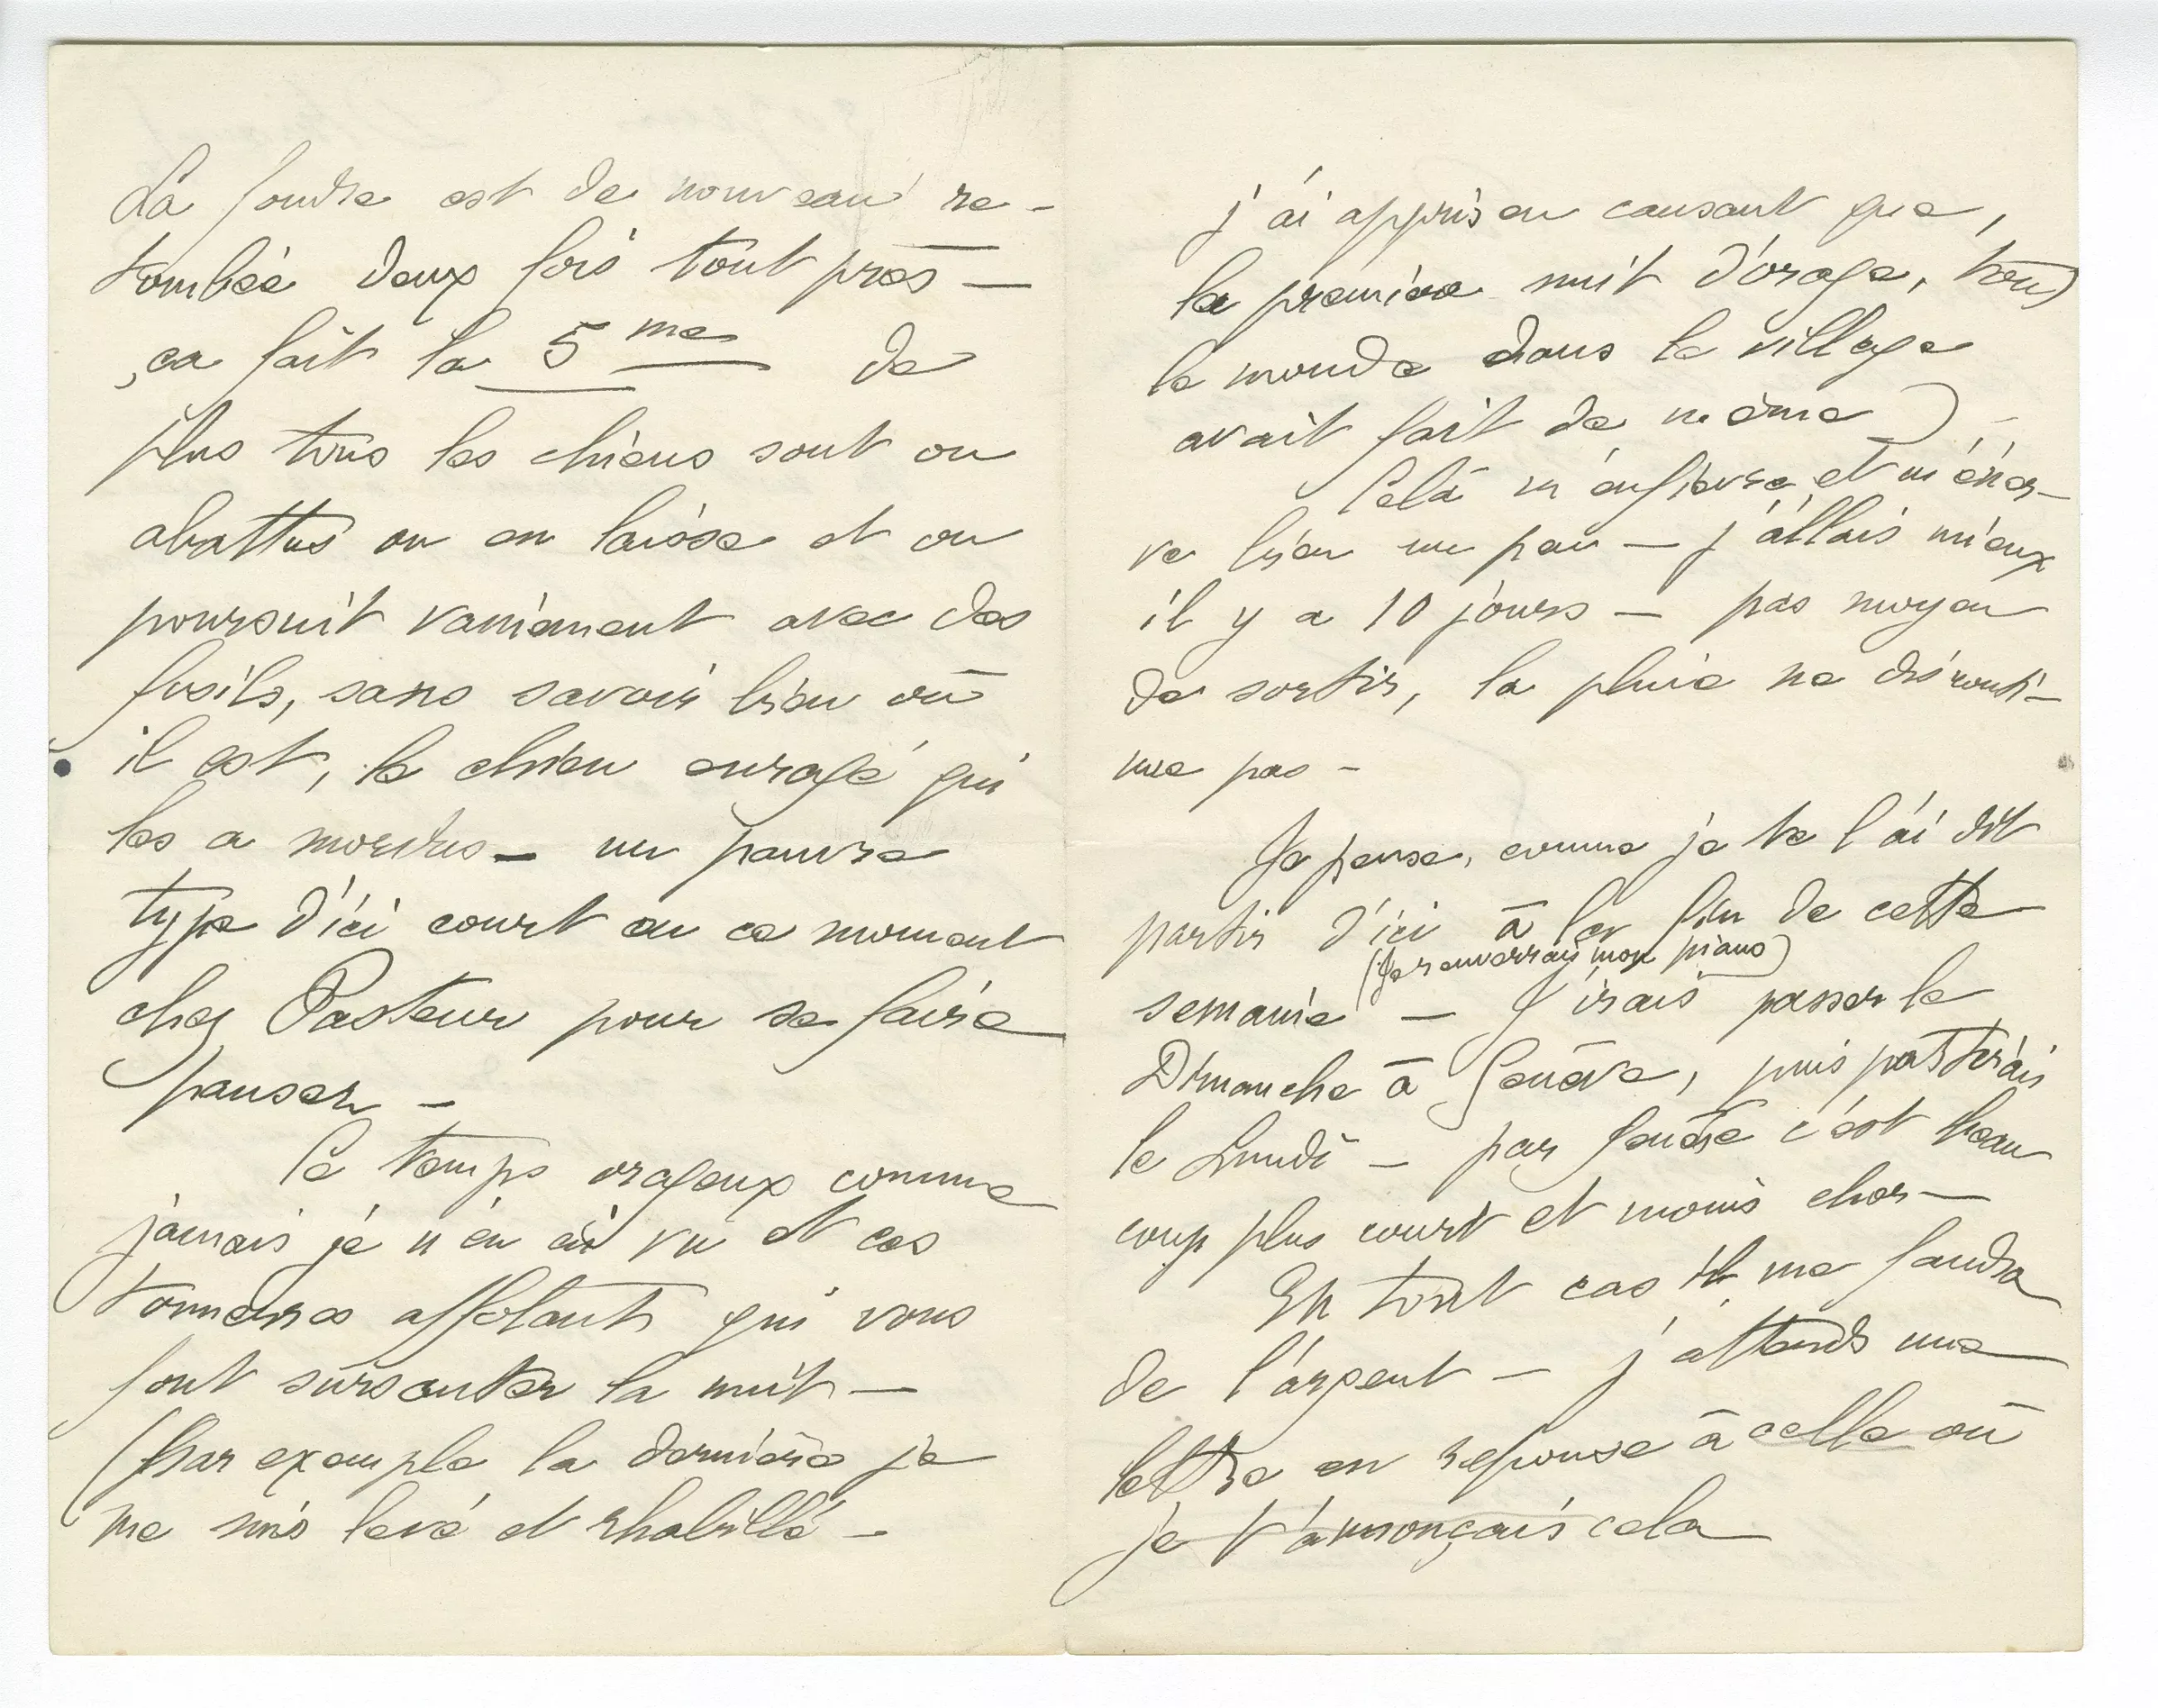 La foudre est de nouveau re-
tombée deux fois tout près —
ça fait la 5me de
plus tous les chiens sont ou
abattus ou en laisse et on
poursuit vainement avec des
fusils, sans savoir bien où
il est, le chien enragé qui
les a mordus — un pauvre
type d'ici court en ce moment
chez Pasteur pour se faire
panser —
Ce temps orageux comme
jamais je n'en ai vu et ces
tonnerres affolants qui vous
font sursauter la nuit —
(Par exemple la dernière je
me suis levé et rhabillé —
j'ai appris en causant que,
la première nuit d'orage, tout
le monde dans le village
avait fait de même) —
Cela m'enfièvre et m'éner-
ve bien un peu — j'allais mieux
il y a 10 jours — pas moyen
de sortir, la pluie ne disconti-
nue pas —
Je pense, comme je te l'ai dit
partir d'ici à la fin de cette
(Je renverrais mon piano)
semaine — J'irais passer le
Dimanche à Genève, puis partirais
le Lundi — par Genève c'est beau
coup plus court et moins cher —
En tout cas il me faudra
de l'argent — j'attends une
lettre en réponse à celle où
je t'annonçais cela